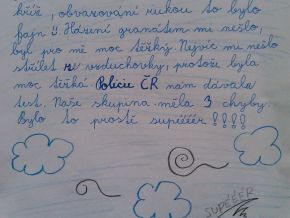 kříž, obvazování rukou to bylo
fajn ü. Házení granátem mi nešlo,
byl pro mě moc těžký. Nejvíc mi nešlo
střílet ze vzduchovky, protože byla
moc těžká Policie ČR nám dávala
test. Naše skupina měla 3 chyby.
Bylo to prostě supéééér !!!!
SUPÉÉÉR